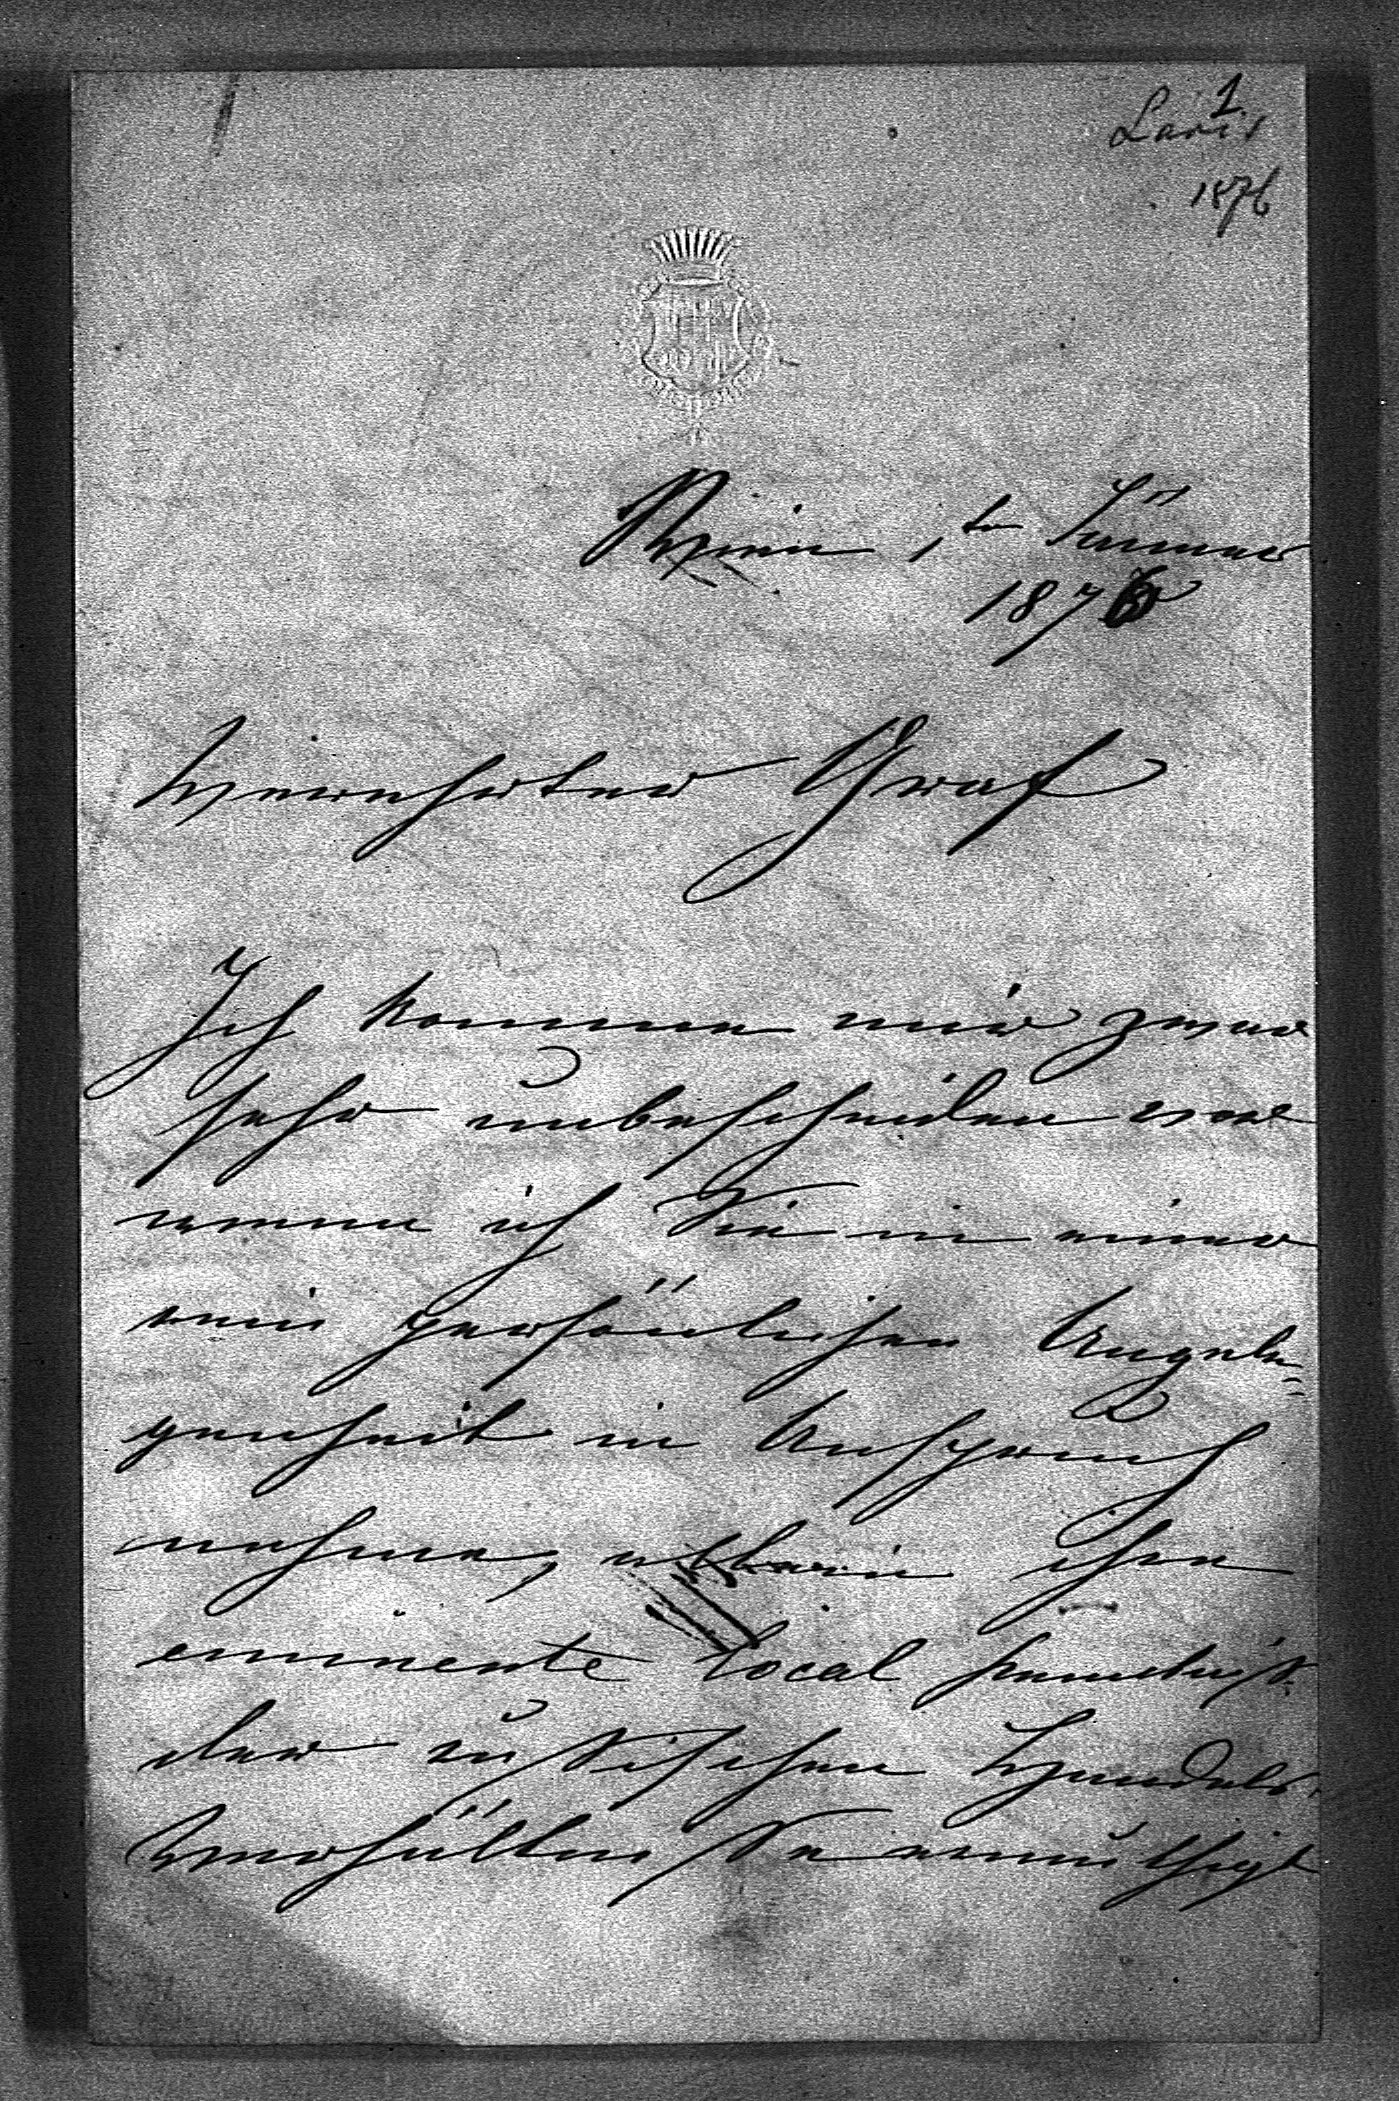 1
Laris
1876
Wien 1ten Jänner
1876
Verehrter Graf
Ich komme mir zwar
sehr unbescheiden vor
wenn ich Sie in einer
rein persönlichen Angele=
genheit in Anspruch
nehme, allein ihre
eminente local Kenntniß
der russischen Handels-
Verhältnisse ermuthigt